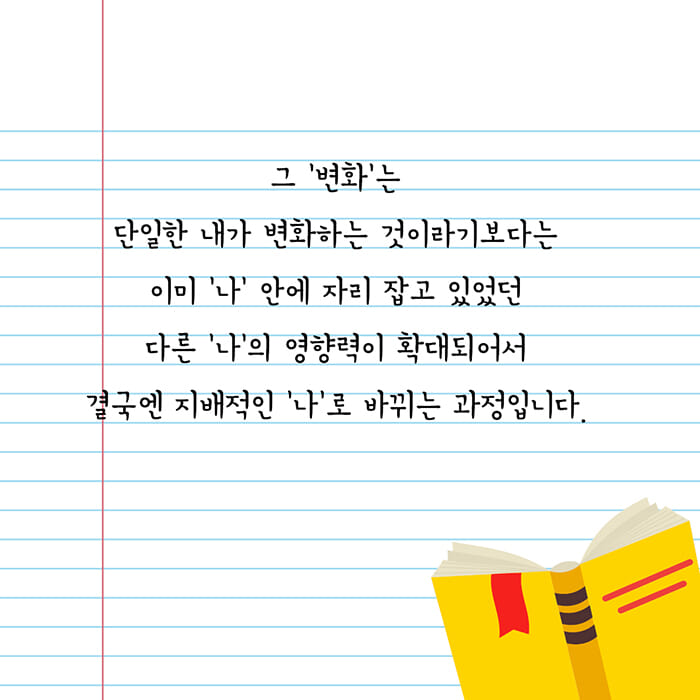 그 '변화'는
단일한 내가 변화하는 것이라기보다는
이미 '나' 안에 자리 잡고 있었던
다른 '나'의 영향력이 확대되어서
결국엔 지배적인 '나'로 바뀌는 과정입니다.